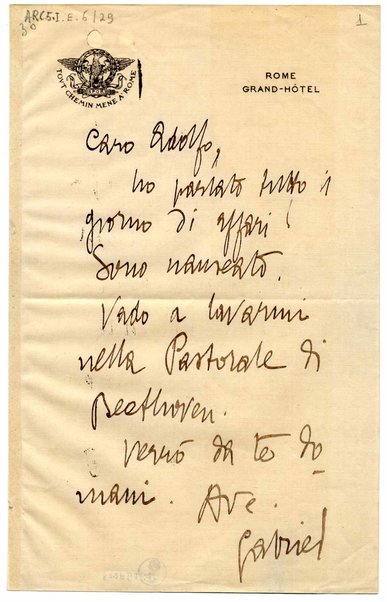 ARC5.I.E.6/29
1
TOVT CHEMIN MENE A ROME
ROME
GRAND-HÔTEL
Caro Adolfo,
ho parlato tutto il
giorno di affari!
Sono nauseato.
Vado a lavarmi
nella Pastorale di
Beethoven.
Verrò da te do
mani. Ave.
Gabriel